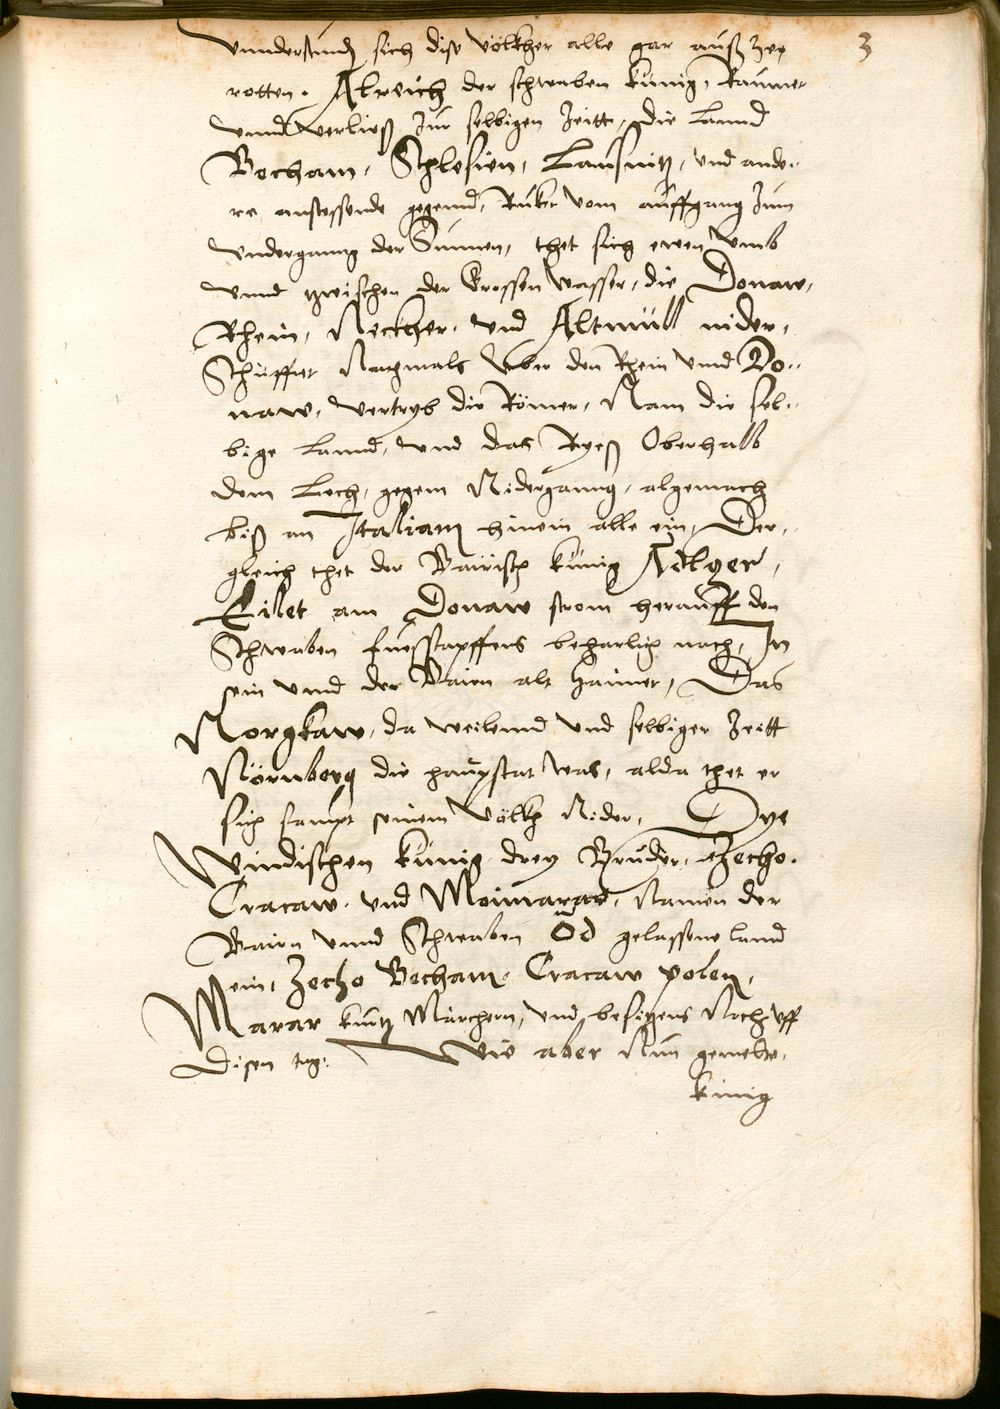 3
vnnderstundn sich dise völkher alle gar auß zue
rotten. Alreich der schwaben künig, Raumet
vnnd verließ zur selbigen Zeitt, die Lannd
Becham, Schlesien, Lausnitz, vnd ande-
re anstossende gegennd, Rückt vom auffgang zum
vnderganng der Sunnen, thet sich ewen vmb
vnnd zwischen der Grossen wasser, die Donaw,
Rhein, Neckher, vnd Altmüll nider,
Schüffet Nachmals vber den Rhein vnnd Do-
naw, vertryb die Römer, Nam die sel-
bige Lannd, vnd das Ryeß Oberhalb
dem Lech, gegem Niderganng, algemach
biß an Italiam hinein alle ein, Der-
gleich thet der Bairisch künig Adlger,
Eilet am Donaw strom herauff den
Schwaben fuesstapffens beharlich nach, In
sein vnnd der Baien alt haimet, Das
Norgkaw, da weilennd vnd selbiger Zeitt
Nörnberg die haupstat was, alda thet er
sich sampt seinem völkh Nider, Dye
Windischen künig drey Brüder, Zecho.
Cracaw. vnd Moimarar, Namen der
Bairn vnnd Schwaben Öd gelassene land
ein, Zecho Becham, Cracaw polen,
Marar kuntz Märchern, vnd besitzens Noch vff
disen tag. Wie aber Nun gemelte
künig